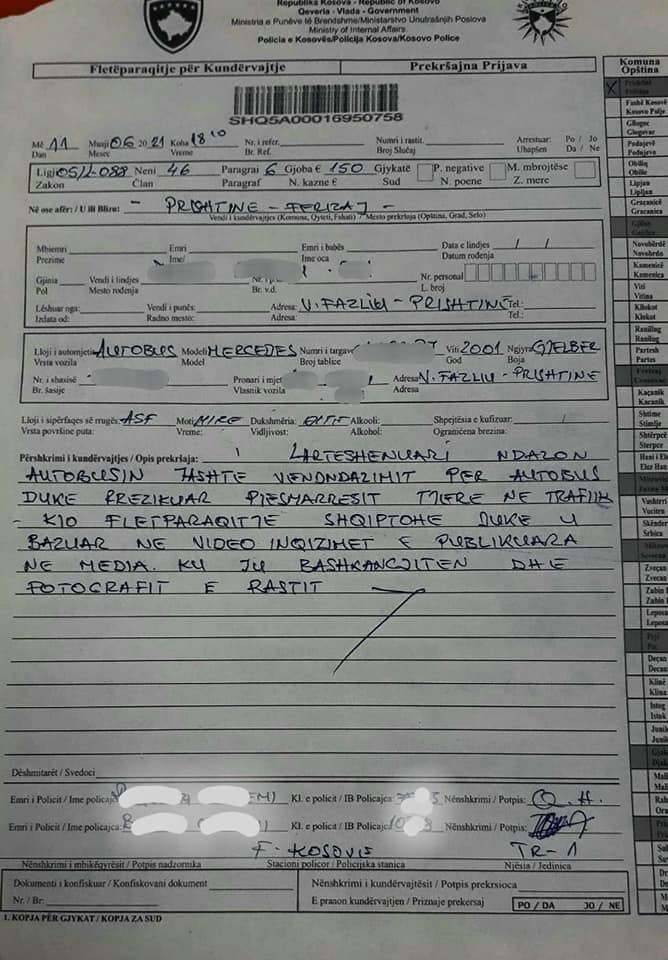 Republika Kosova - Republic of Kosovo
Qeveria - Vlada - Government
Ministria e Punëve të Brendshme/Ministarstvo Unutrašnjih Poslova
Ministry of Internal Affairs
Policia e Kosovës/Policija Kosova/Kosovo Police
Fletëparaqitje për Kundërvajtje Prekršajna Prijava
SHQ5A00016950758
Më 11 Muaji 06 20 21 Koha 18 10 Nr. i refer. Numri i rastit. Arrestuar: Po / Jo
Dan Mesec Vreme Br. Ref. Broj Slučaj Uhapšen Da / Ne
Ligji 05/L-088 Neni 46 Paragrai 6 Gjoba € 150 Gjykatë P. negative M. mbrojtëse
Zakon Član Paragraf N. kazne € Sud N. poene Z. merc
Në ose afër: / U ili Blizu: - PRISHTINE - FERIZAJ -
Vendi i kundërvajtjes (Komuna, Qyteti, Fshati) / Mesto prekršoja (Opština, Grad, Selo)
Mbiemri Emri Emri i babës Data e lindjes / /
Prezime Ime/ Ime oca Datum rođenja
Gjinia Vendi i lindjes Nr. personal
Pol Mesto rođenja Br. v.d. L. broj
Lëshuar nga: Vendi i punës: Adresa: V. FAZLIU - PRISHTINË Tel.:
Izdata od: Radno mesto: Adresa: Tel.:
Lloji i automjetit AUTOBUS Modeli MERCEDES Numri i targave Viti 2001 Ngjyra GJELBER
Vrsta vozila Model Broj tablice God Boja
Nr. i shasisë Pronari i mjet Adresa V. FAZLIU - PRISHTINE
Br. šasije Vlasnik vozila Adresa
Lloji i sipërfaqes së rrugës: ASF Moti MIRE Dukshmëria: Alkooli: Shpejtësia e kufizuar:
Vrsta površine puta: Vreme: Vidljivost: Alkohol: Ograničena brezina:
Përshkrimi i kundërvajtjes / Opis prekršaja: I LARTESHENUARI NDALON
AUTOBUSIN JASHTE VENDNDALIMIT PER AUTOBUS
DUKE RREZIKUAR PJESMARRESIT TJERE NE TRAFIK
- KJO FLETPARAQITJE SHQIPTOHE DUKE U
BAZUAR NE VIDEO INQIZIMET E PUBLIKUARA
NE MEDIA. KU JU BASHKANGJITEN DHE
FOTOGRAFIT E RASTIT
Dëshmitarët / Svedoci
Emri i Policit / Ime policajca Kl. e policit / IB Policajca Nënshkrimi / Potpis: Q.H.
Emri i Policit / Ime policajca: Kl. e policit / IB Policajca Nënshkrimi / Potpis:
F. KOSOVIS TR-1
Nënshkrimi i mbikëqyrësit / Potpis nadzornika Stacioni policor / Policijska stanica Njësia / Jedinica
Dokumenti i konfiskuar / Konfiskovani dokument Nënshkrimi i kundërvajtësit / Potpis prekrsioca
Nr. / Br: E pranon kundërvajtjen / Priznaje prekersaj PO / DA JO / NE
1. KOPJA PËR GJYKAT / KOPJA ZA SUD
Komuna
Opština
Prishtinë
Priština
Fushë Kosovë
Kosovo Polje
Gllogoc
Glogovac
Podujevë
Podujevo
Obiliq
Obilic
Lipjan
Lipljan
Graçanicë
Gracanica
Novobërdë
Novobrdo
Kamenicë
Kamenica
Viti
Vitina
Kllokot
Klokot
Ranillug
Ranilug
Partesh
Partes
Kaçanik
Kacanik
Shtime
Stimlje
Shtërpcë
Sterpce
Hani i Ele
Elez Han
Vushtrri
Vucitrn
Skënder
Srbica
Zveçan
Zvecan
Zubin
Zubin
Leposa
Leposa
Deçan
Decan
Klinë
Klina
Istog
Istok
Junik
Junik